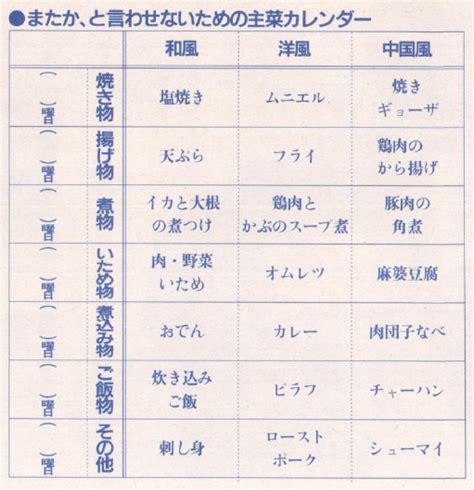 ●またか、と言わせないための主菜カレンダー
和風 洋風 中国風
( )曜日 焼き物 塩焼き ムニエル 焼き
ギョーザ
( )曜日 揚げ物 天ぷら フライ 鶏肉の
から揚げ
( )曜日 煮物 イカと大根 鶏肉と 豚肉の
の煮つけ かぶのスープ煮 角煮
( )曜日 いため物 肉・野菜 オムレツ 麻婆豆腐
いため
( )曜日 煮込み物 おでん カレー 肉団子なべ
( )曜日 ご飯物 炊き込み ピラフ チャーハン
ご飯
( )曜日 その他 刺し身 ロースト シューマイ
ポーク